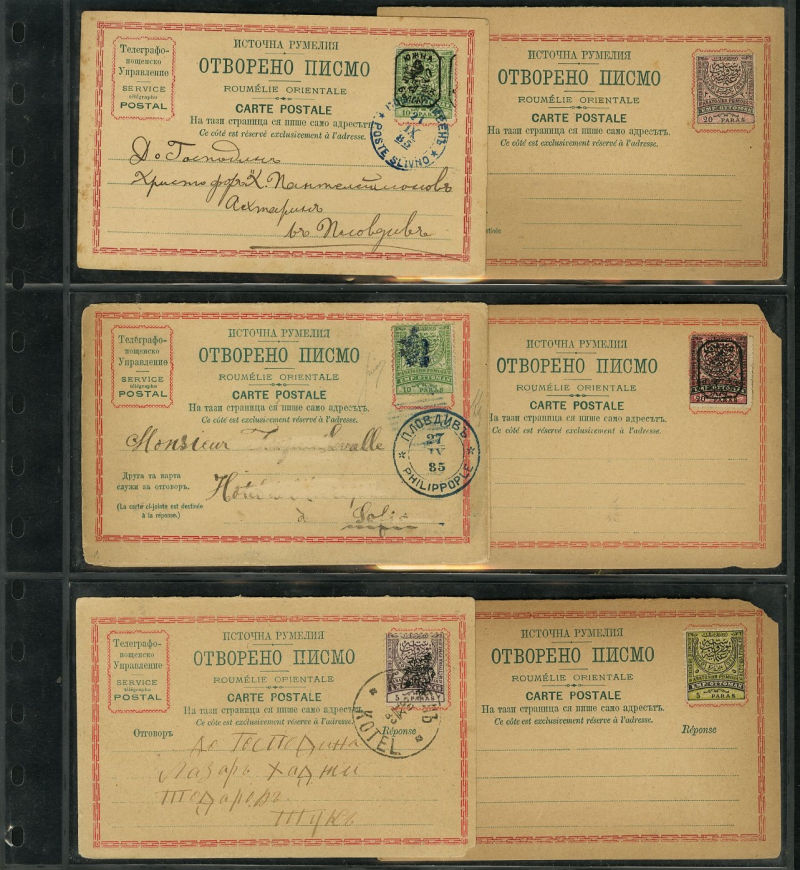 Телеграфо-
пощенско
Управление
SERVICE
télégrapho
POSTAL
ИСТОЧНА РУМЕЛИЯ
ОТВОРЕНО ПИСМО
ROUMÉLIE ORIENTALE
CARTE POSTALE
На тази страница ся пише само адресътъ.
Ce côté est réservé exclusivement à l'adresse.
ЮЖНА
10 PARAS
IX
85
POSTE SLIVNO
До Господинъ
Христофоръ К. Пантелеймоновъ
Ахтаринъ
въ Пловдивъ
ИСТОЧНА РУМЕЛИЯ
ОТВОРЕНО ПИСМО
ROUMÉLIE ORIENTALE
CARTE POSTALE
На тази страница ся пише само адресътъ.
Ce côté est réservé exclusivement à l'adresse.
20 PARAS
destinée
Телеграфо-
пощенско
Управление
SERVICE
télégrapho
POSTAL
ИСТОЧНА РУМЕЛИЯ
ОТВОРЕНО ПИСМО
ROUMÉLIE ORIENTALE
CARTE POSTALE
На тази страница ся пише само адресътъ.
Ce côté est réservé exclusivement à l'adresse.
EMP. OTTOMAN
10 PARAS
ПЛОВДИВЪ
27
IX
85
PHILIPPOPLE
Monsieur
Друга та карта
служи за отговоръ.
(La carte ci-jointe est destinée
à la réponse.)
à
ИСТОЧНА РУМЕЛИЯ
ОТВОРЕНО ПИСМО
ROUMÉLIE ORIENTALE
CARTE POSTALE
На тази страница ся пише само адресътъ.
Ce côté est réservé exclusivement à l'adresse.
EMP. OTTOMAN
20 PARAS
Телеграфо-
пощенско
Управление
SERVICE
télégrapho
POSTAL
ИСТОЧНА РУМЕЛИЯ
ОТВОРЕНО ПИСМО
ROUMÉLIE ORIENTALE
CARTE POSTALE
На тази страница ся пише само адресътъ.
Ce côté est réservé exclusivement à l'adresse.
5 PARAS
KOTEL
Отговоръ
Réponse
до Господина
Лазаръ Хаджи
Тодаровъ
Тукъ
ИСТОЧНА РУМЕЛИЯ
ОТВОРЕНО ПИСМО
ROUMÉLIE ORIENTALE
CARTE POSTALE
На тази страница ся пише само адресътъ.
Ce côté est réservé exclusivement à l'adresse.
EMP. OTTOMAN
5 PARAS
Réponse